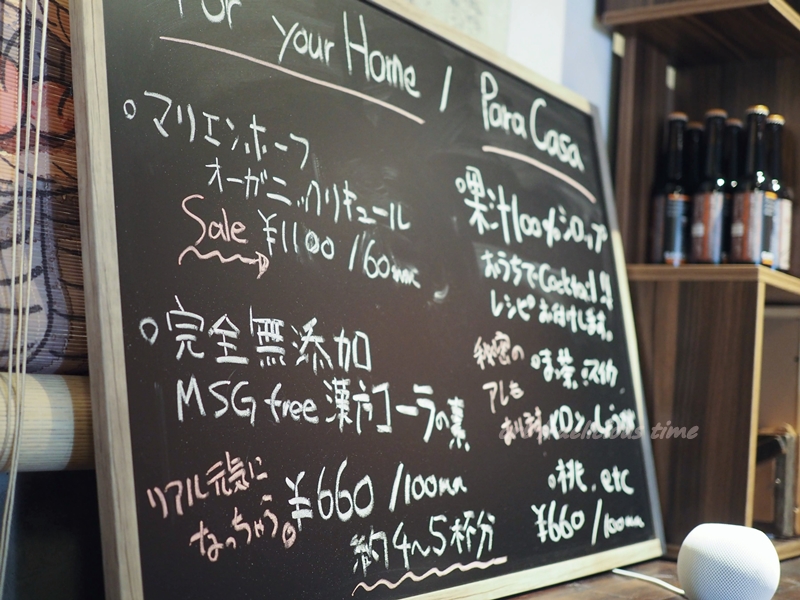 For your Home / Para Casa
○マリエンホーフ
オーガニックリキュール
Sale ¥1100 /60ml
○完全無添加
MSG free 漢方コーラの素
リアル元気に
なっちゃう。
¥660 /100ml
約4~5杯分
○果汁100%シロップ
おうちでCocktail!!
レシピお付けします。
秘密の
アレも
あります
・抹茶・スイカ
・メロン
・桃, etc
¥660 /100ml
delicious time